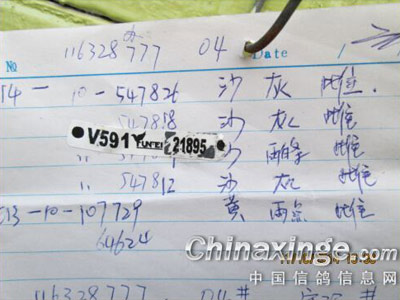 116328777 04 Date /
№
T4 - 10 - 547826 沙 灰 雌.
547818 沙 灰 雌
V591 YUN FEI 221895
沙 雨條 雌
〃 547812 沙 灰 雌
E13-10-107729 黄 雨点 雌
64624
Chinaxinge.com
中国信鸽信息网
116328777 04